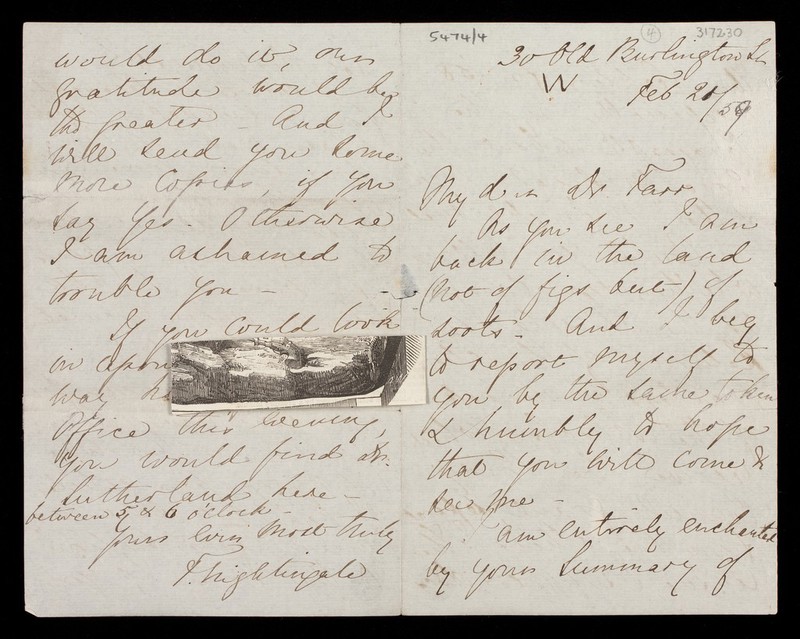 5474/4
4
317230
30 Old Burlington St
W
Feb 21/59
My dear Dr Farr
As you see I am
back in the land
(not of figs but) of
soots - And I beg
to report myself to
you by the same token
& humbly to hope
that you will come &
see me -
I am entirely enchanted
by your Summary of
would do it, our
gratitude would be
the greater - And I
will send you some
more copies, if you
say Yes - Otherwise
I am ashamed to
trouble you -
If you could look
in
way
Office this evening,
you would find Dr.
Sutherland here -
between 5 & 6 o'clock -
Yours ever most truly
F. Nightingale